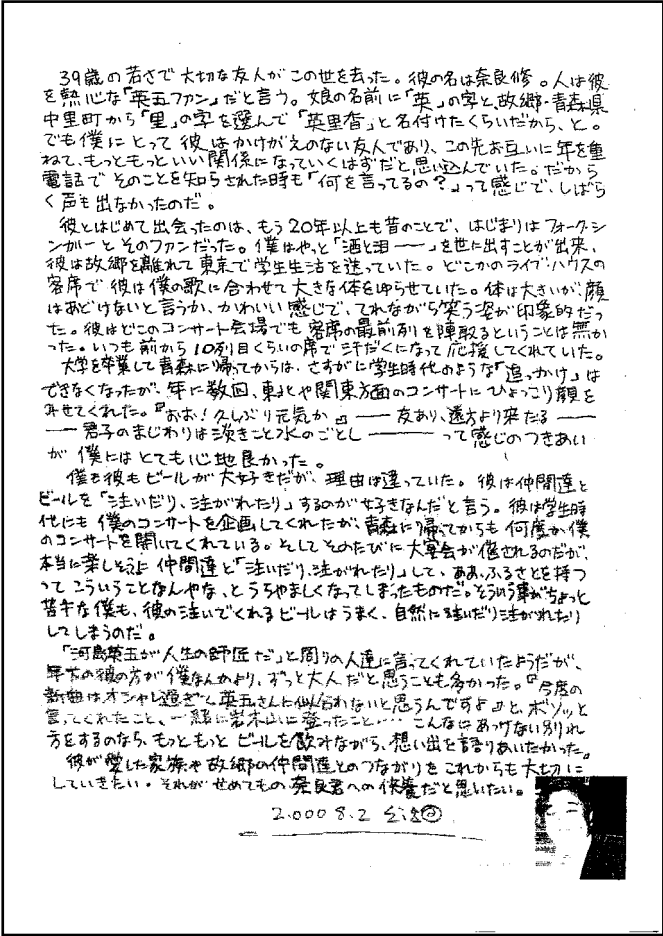 39歳の若さで大切な友人がこの世を去った。彼の名は奈良修。人は彼
を熱心な「英五ファン」だと言う。娘の名前に「英」の字と故郷・青森県
中里町から「里」の字を選んで「英里香」と名付けたくらいだから、と。
でも僕にとって彼はかけがえのない友人であり、この先お互いに年を重
ねて、もっともっといい関係になっていくはずだと思い込んでいた。だから
電話でそのことを知らされた時も「何を言ってるの?」って感じで、しばら
く声も出なかったのだ。
彼とはじめて出会ったのは、もう20年以上も昔のことで、はじまりはフォーク・シ
ンガーとそのファンだった。僕はやっと「酒と泪――」を世に出すことが出来、
彼は故郷を離れて東京で学生生活を送っていた。どこかのライブ・ハウスの
客席で彼は僕の歌に合わせて大きな体をゆらせていた。体は大きいが、顔
はあどけないと言うか、かわいい感じで、てれながら笑う姿が印象的だっ
た。彼はどこのコンサート会場でも客席の最前列を陣取るということは無か
った。いつも前から10列目くらいの席で汗だくになって応援してくれていた。
大学を卒業して青森に帰ってからは、さすがに学生時代のような「追っかけ」は
できなくなったが、年に数回、東北や関東方面のコンサートにひょっこり顔を
みせてくれた。『おお!久しぶり元気か』――友あり、遠方より来たる――
――君子のまじわりは淡きこと水のごとし――って感じのつきあい
が僕にはとても心地良かった。
僕も彼もビールが大好きだが、理由は違っていた。彼は仲間達と
ビールを「注いだり、注がれたり」するのが好きなんだと言う。彼は学生時
代にも僕のコンサートを企画してくれたが、青森に帰ってからも何度か僕
のコンサートを開いてくれている。そしてそのたびに大宴会が催されるのだが、
本当に楽しそうに仲間達と「注いだり、注がれたり」して、ああ、ふるさとを持つ
ってこういうことなんやな、とうらやましくなってしまったものだ。そういう事がちょっと
苦手な僕も、彼の注いでくれるビールはうまく、自然に注いだり注がれたり
してしまうのだ。
「河島英五が人生の師匠だ」と周りの人達に言ってくれていたようだが、
年下の彼の方が僕なんかより、ずっと大人だと思うことも多かった。『今度の
新曲はオシャレ過ぎて英五さんに似合わないと思うんですよ』と、ボソッと
言ってくれたこと、一緒に岩木山に登ったこと…… こんなにあっけない別れ
方をするのなら、もっともっとビールを飲みながら、想い出を語りあいたかった。
彼が愛した家族や故郷の仲間達とのつながりをこれからも大切に
していきたい。それがせめてもの奈良君への供養だと思いたい。
2,000 8.2